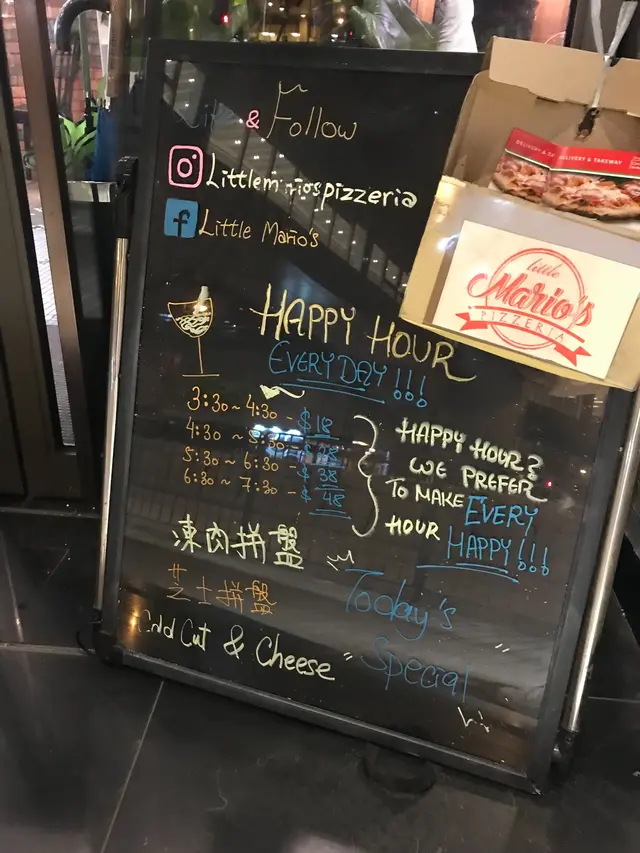 & Follow
Littlemariospizzeria
f Little Mario's
HAPPY HOUR
EVERYDAY!!!
3:30~4:30 - $18
4:30 ~ 5:30 - $28
5:30 ~ 6:30 - $38
6:30 ~ 7:30 - $48
HAPPY HOUR?
WE PREFER
TO MAKE EVERY
HOUR HAPPY!!!
凍肉拼盤
芝士拼盤
Cold Cut & Cheese
Today's
Special
DELIVERY & TAKEWAY
little
Mario's
PIZZERIA